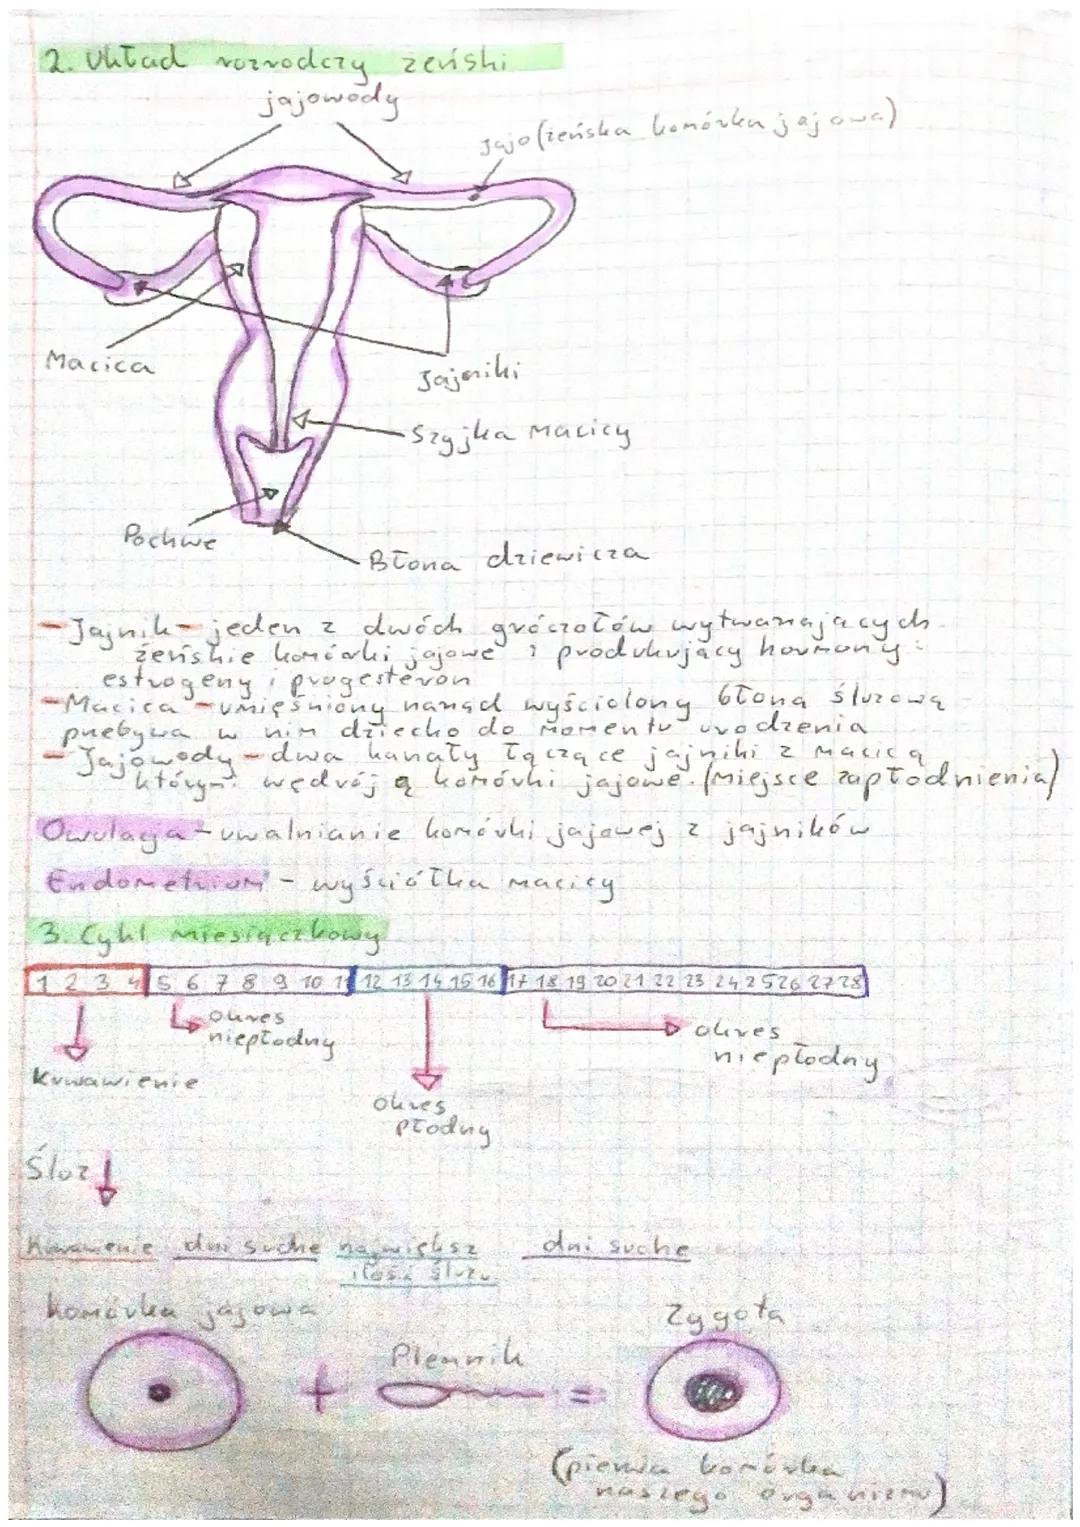 2. Układ rozrodczy żeński
jajowody
Jajo (żeńska komórka jajowa)
Macica
Jajniki
Szyjka macicy
Pochwe
Błona dziewicza
- Jajnik - jeden z dwóch gróczołów wytwarzających
żeńskie komórki jajowe i produkujący hormony:
estrogeny i progesteron
- Macica - umięśniony narząd wyściolony błoną śluzową
przebywa w nim dziecko do momentu urodzenia
- Jajowody - dwa kanały łączące jajniki z macicą
którymi wędrują komórki jajowe. (miejsce zapłodnienia)
Owulacja - uwalnianie komórki jajowej z jajników
Endometrium - wyściółka macicy
3. Cykl miesiączkowy
1 2 3 4 5 6 7 8 9 10 11 12 13 14 15 16 17 18 19 20 21 22 23 24 25 26 27 28
okres
niepłodny
okres
niepłodny
Krwawienie
okres
płodny
Śluz
Krwawienie dni suche największ dni suche
ilość śluzu
komórka jajowa
Zygota
Plemnik
+ =
(pierwsza komórka
naszego organizmu)